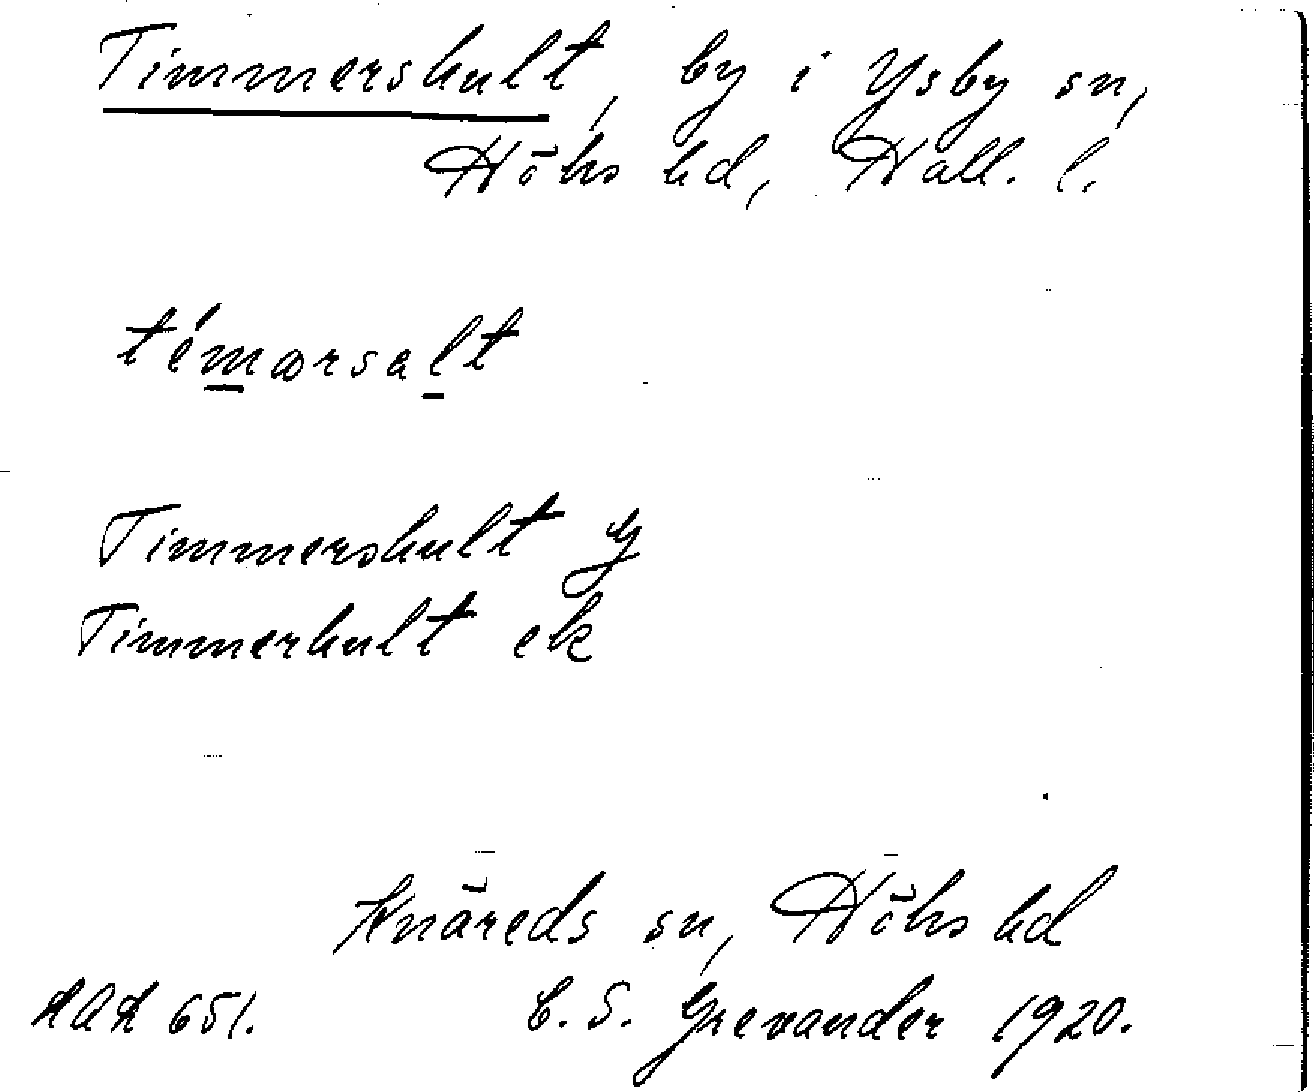 Timmershult, by i Ysby sn,
Höks hd, Hall. l.
témərsalt
Timmershult G
Timmerhult ek
Knäreds sn, Höks hd
651. C. S. Grevander 1920.